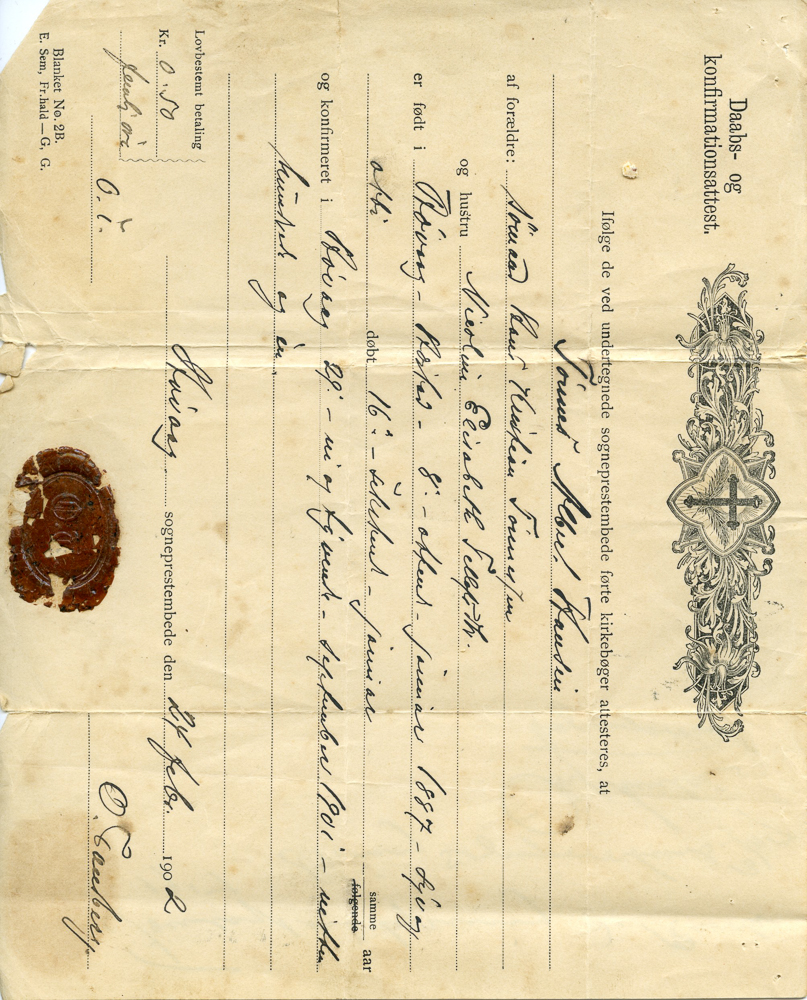 Daabs- og
konfirmationsattest.
Ifølge de ved undertegnede sogneprestembede førte kirkebøger attesteres, at
Tönnes Albert Hansen
af forældre: Sömand Hans Kristian Tönnesen
og hustru Nicoline Elisabeth
er født i Høvaag 8. - ottende - januar 1887 - syv og
otti døbt 16. - sekstende - januar samme følgende aar
og konfirmeret i Høvaag 29. - ni og tyvende - september 1901 - nitten
hundrede og en.
Høvaag sogneprestembede den 24 febr. 1902
Lovbestemt betaling
Kr. 0.50
femti øre
Blanket No. 2B.
E. Sem, Fr.hald—G, G.